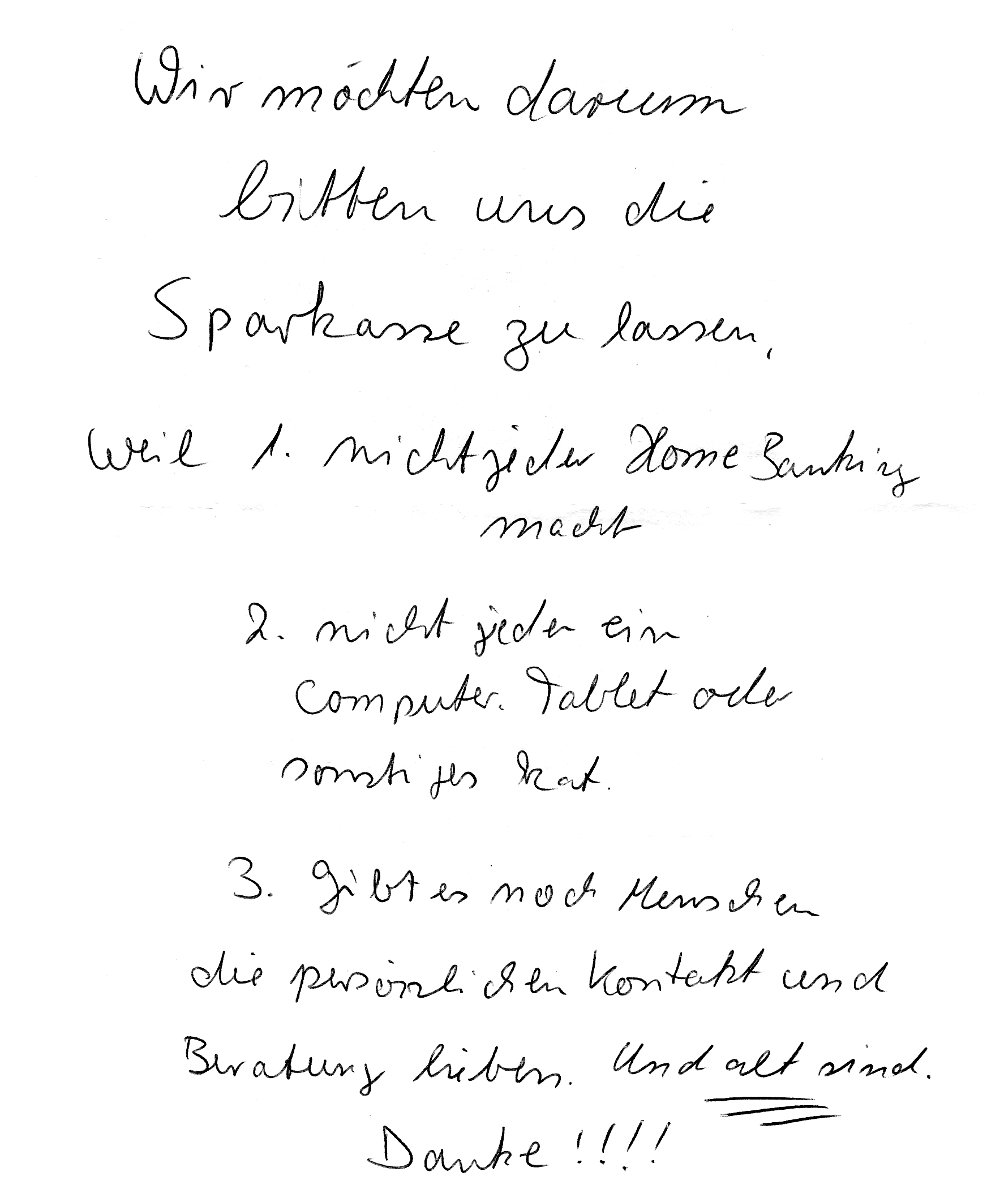 Wir möchten darum
bitten uns die
Sparkasse zu lassen,
weil 1. nicht jeder Home Banking
macht
2. nicht jeder ein
Computer. Tablet oder
sonstiges hat.
3. Gibt es noch Menschen
die persönlichen Kontakt und
Beratung lieben. Und alt sind.
Danke !!!!